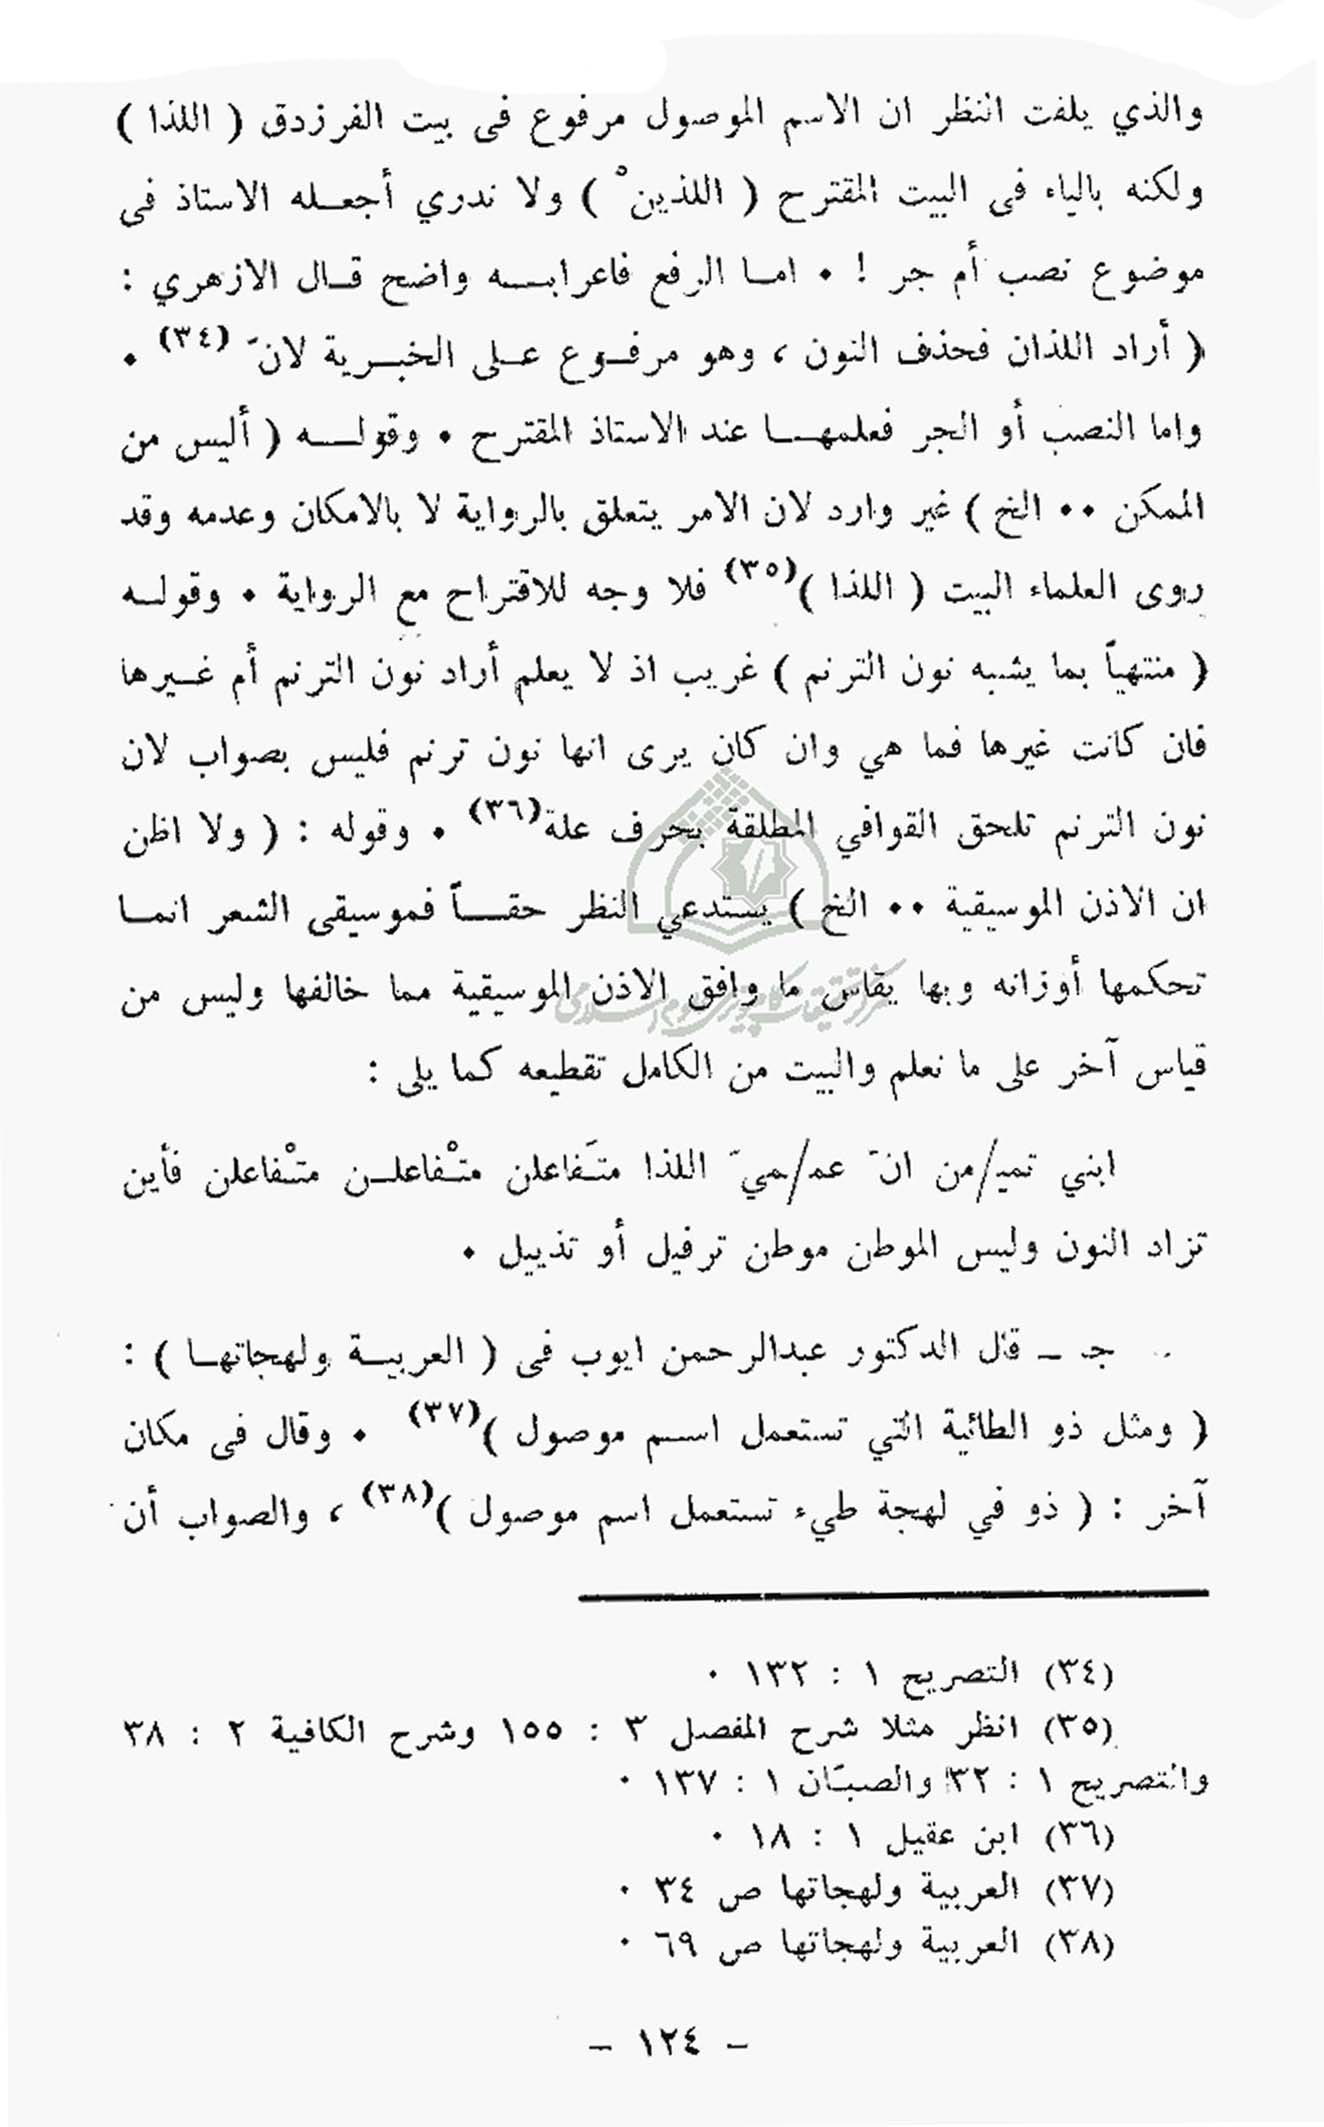 والذي يلفت النظر ان الاسم الموصول مرفوع في بيت الفرزدق ( اللذا )
ولكنه بالياء في البيت المقترح ( اللذينْ ) ولا ندري أجعله الاستاذ في
موضوع نصب أم جر ! ٠ اما الرفع فاعرابه واضح قال الازهري :
( أراد اللذان فحذف النون ، وهو مرفوع على الخبرية لانّ (٣٤) ٠
واما النصب أو الجر فعلمها عند الاستاذ المقترح ٠ وقوله ( أليس من
الممكن ٠٠ الخ ) غير وارد لان الامر يتعلق بالرواية لا بالامكان وعدمه وقد
روى العلماء البيت ( اللذا )(٣٥) فلا وجه للاقتراح مع الرواية ٠ وقوله
( منتهياً بما يشبه نون الترنم ) غريب اذ لا يعلم أراد نون الترنم أم غيرها
فان كانت غيرها فما هي وان كان يرى انها نون ترنم فليس بصواب لان
نون الترنم تلحق القوافي المطلقة بحرف علة(٣٦) ٠ وقوله : ( ولا اظن
ان الاذن الموسيقية ٠٠ الخ ) يستدعي النظر حقاً فموسيقى الشعر انما
تحكمها أوزانه وبها يقاس ما وافق الاذن الموسيقية مما خالفها وليس من
قياس آخر على ما نعلم والبيت من الكامل تقطيعه كما يلي :
ابني تميـ/من انّ عمـ/ميّ اللذا متَفاعلن متْفاعلن متْفاعلن فأين
تزاد النون وليس الموطن موطن ترفيل أو تذييل ٠
جـ ـ قال الدكتور عبدالرحمن ايوب في ( العربية ولهجاتها ) :
( ومثل ذو الطائية التي تستعمل اسم موصول )(٣٧) ٠ وقال في مكان
آخر : ( ذو في لهجة طيء تستعمل اسم موصول )(٣٨) ، والصواب أن
(٣٤) التصريح ١ : ١٣٢ ٠
(٣٥) انظر مثلا شرح المفصل ٣ : ١٥٥ وشرح الكافية ٢ : ٣٨
والتصريح ١ : ١٣٢ والصبّان ١ : ١٣٧ ٠
(٣٦) ابن عقيل ١ : ١٨ ٠
(٣٧) العربية ولهجاتها ص ٣٤ ٠
(٣٨) العربية ولهجاتها ص ٦٩ ٠
– ١٢٤ –